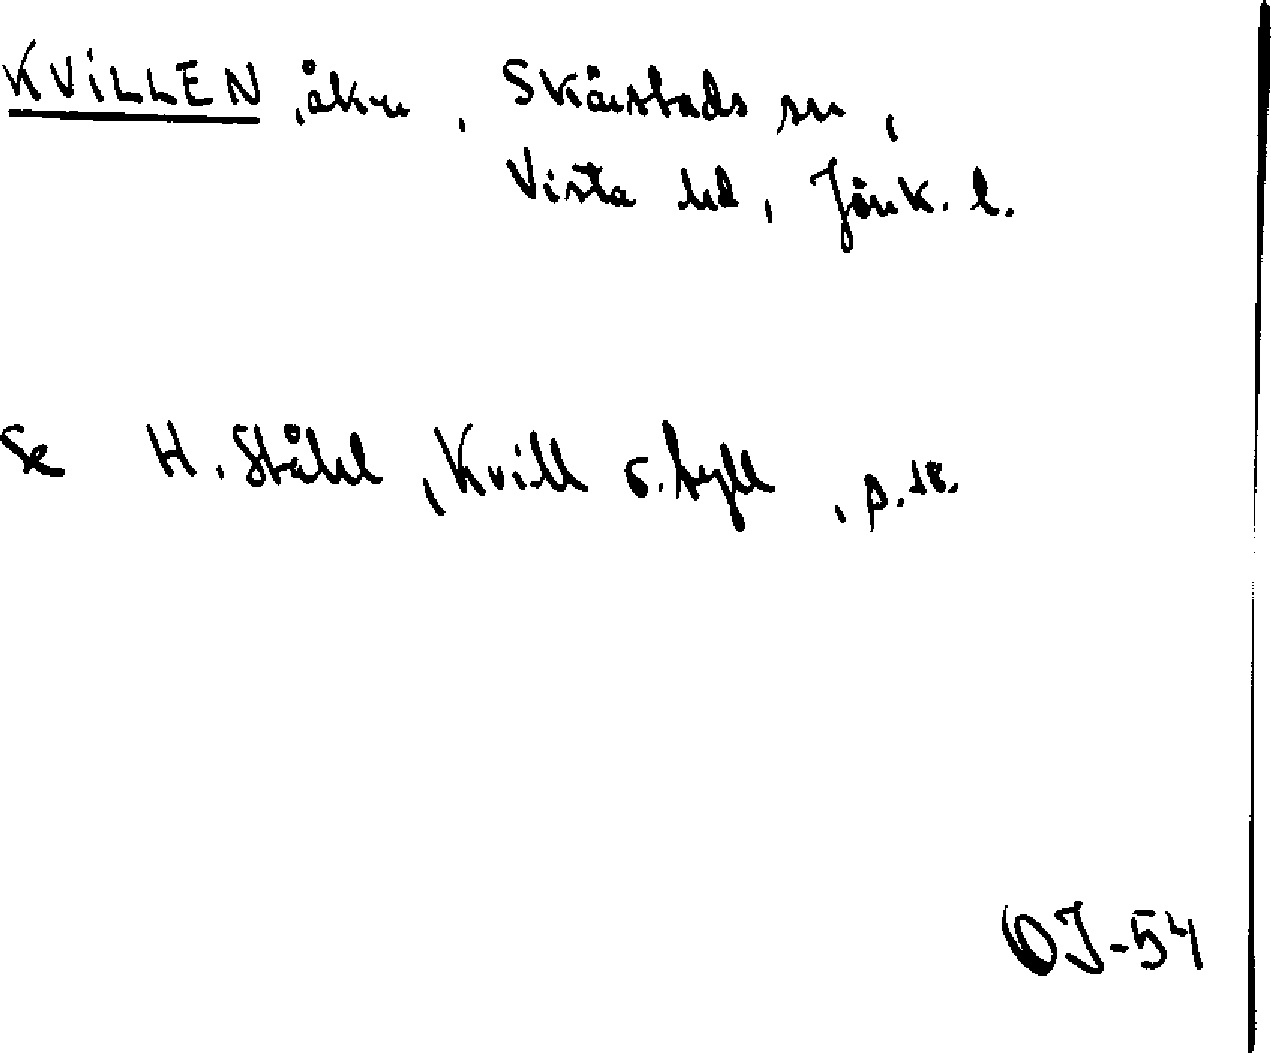 KVILLEN, åker, Skärstads sn,
Vista hd, Jönk. l.
Se H. Ståhl, Kvill o. tyll, p. 18.
OJ-54